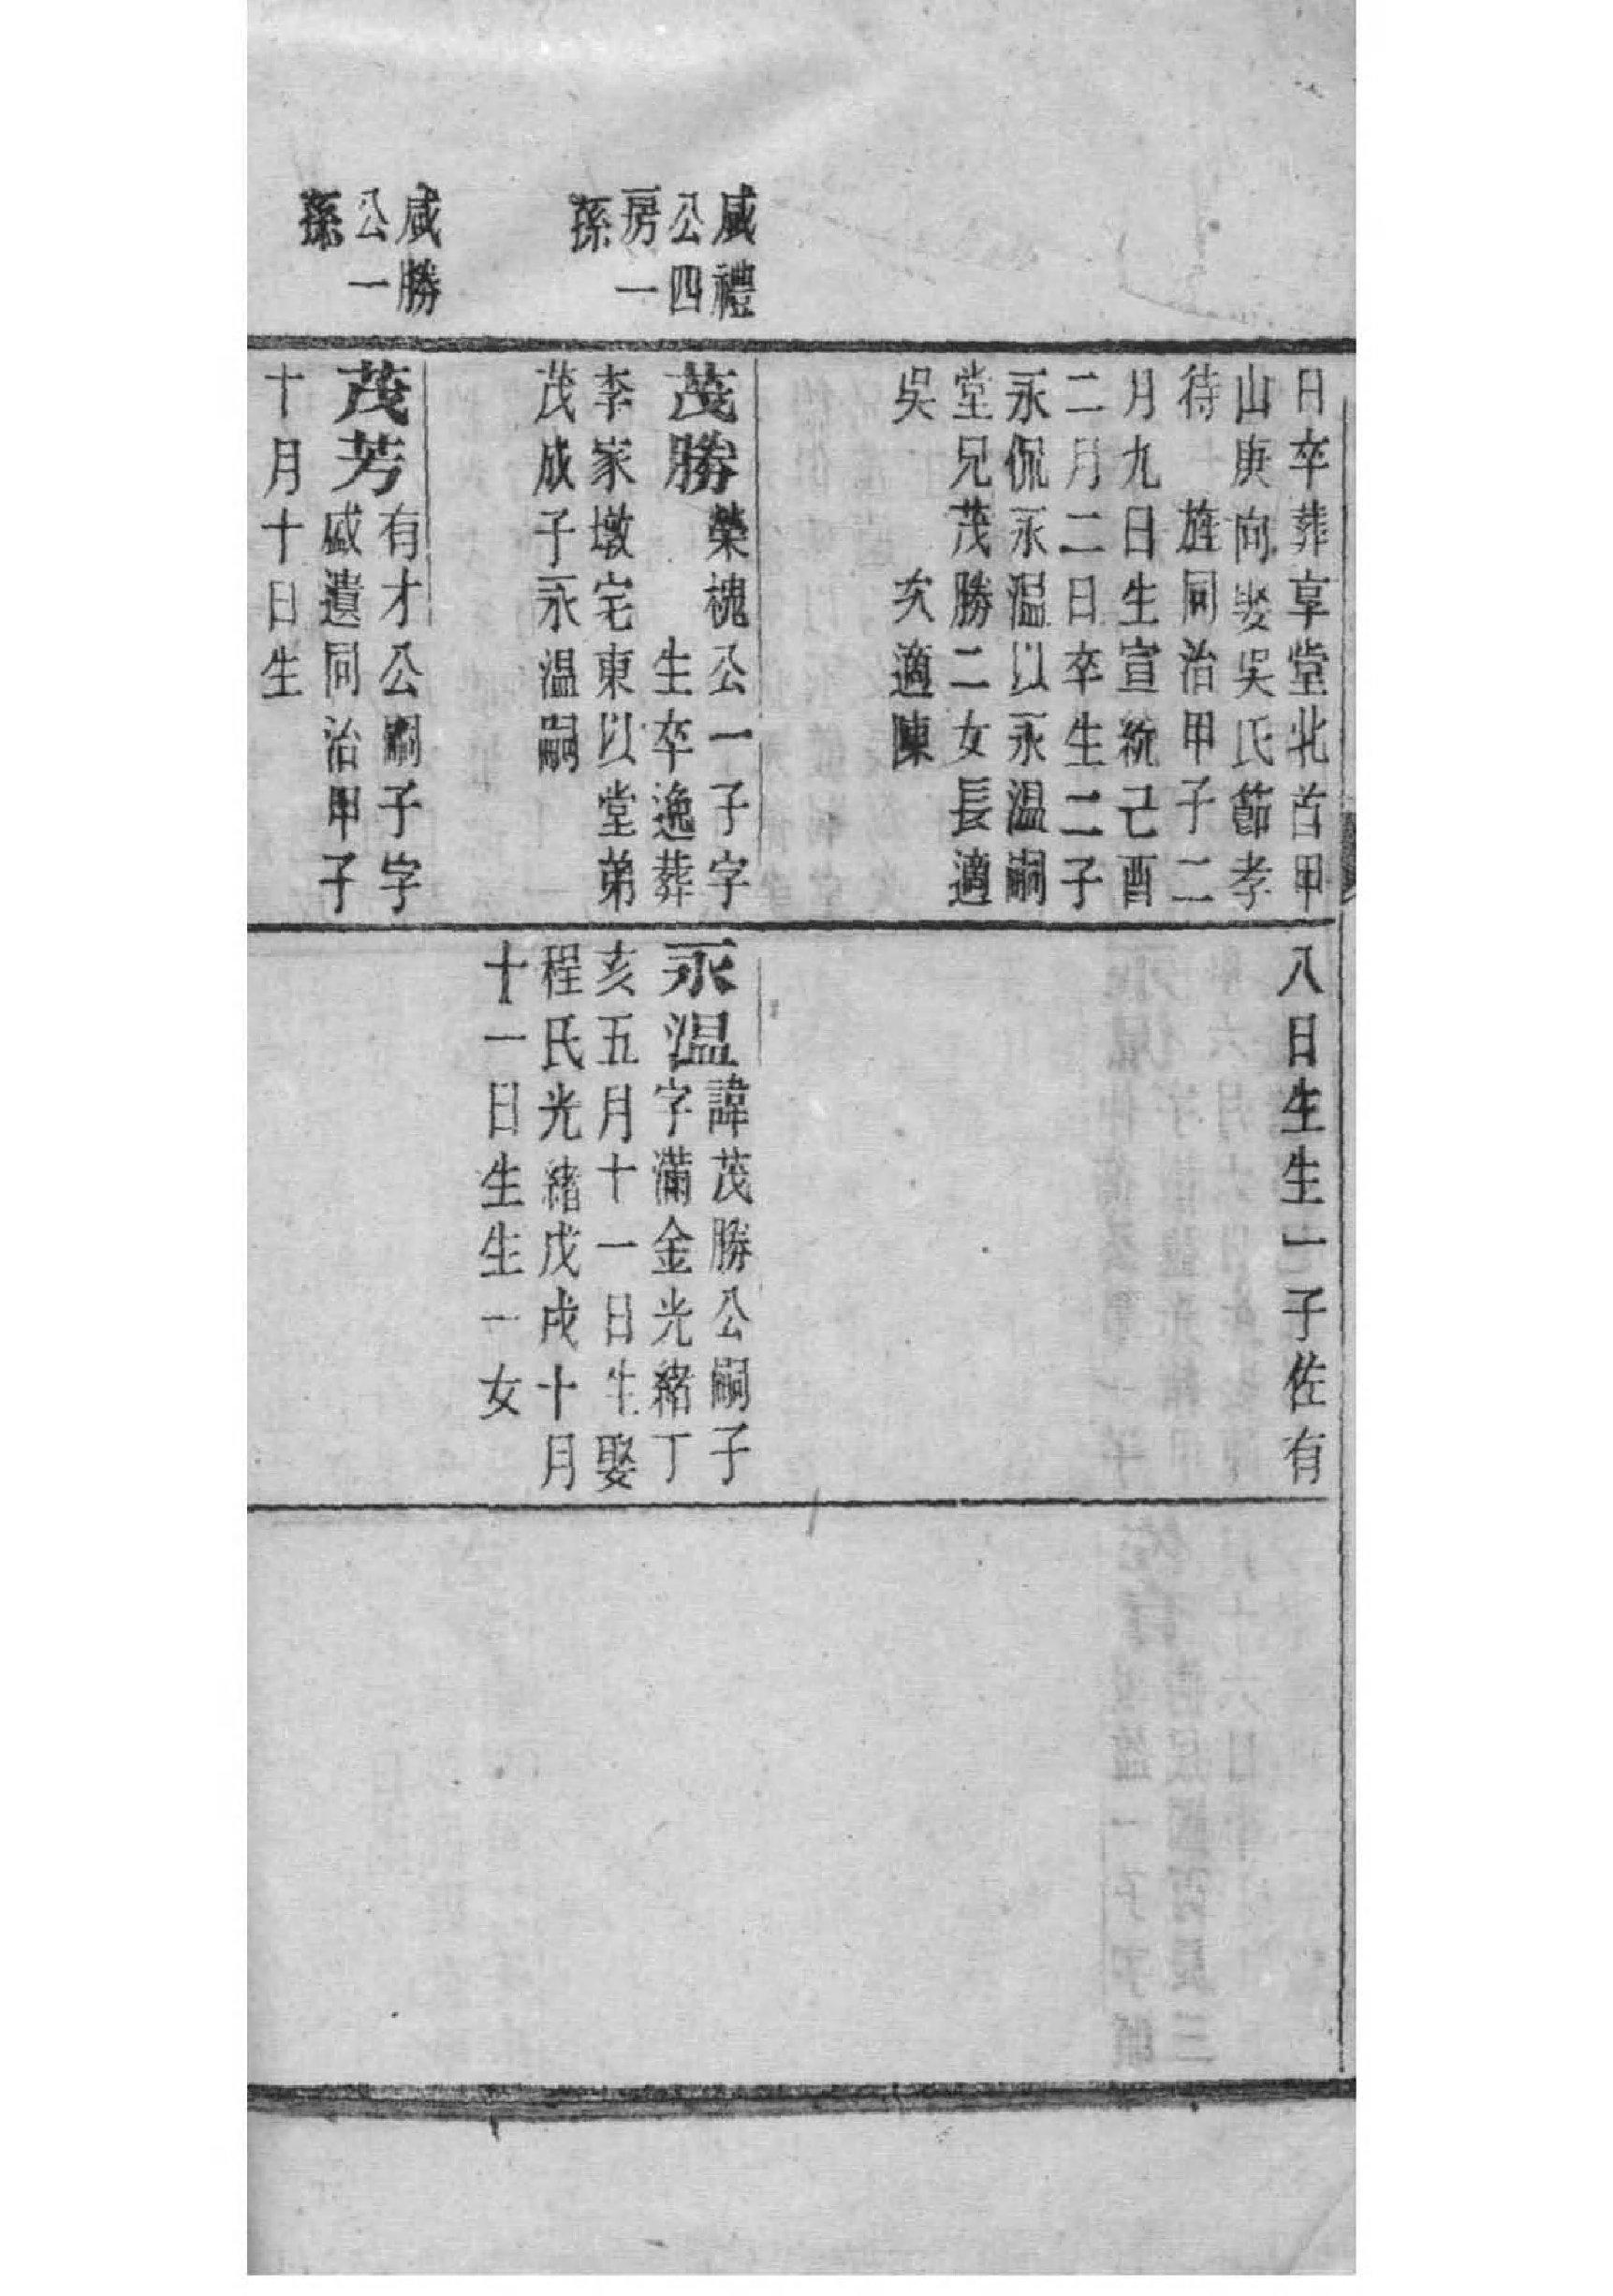 咸禮
公四
房一
孫
咸勝
公一
孫
日卒葬享堂北首甲
山庚向娶吳氏節孝
待旌同治甲子二
月九日生宣統己酉
二月二日卒生二子
永侃永温以永温嗣
堂兄茂勝二女長適
吳　次適陳
茂勝榮槐公一子字
生卒逸葬
李家墩宅東以堂弟
茂成子永温嗣
茂芳有才公嗣子字
咸遺同治甲子
十月十日生
八日生生一子佐有
永温諱茂勝公嗣子
字滿金光緒丁
亥五月十一日生娶
程氏光緒戊戌十月
十一日生生一女